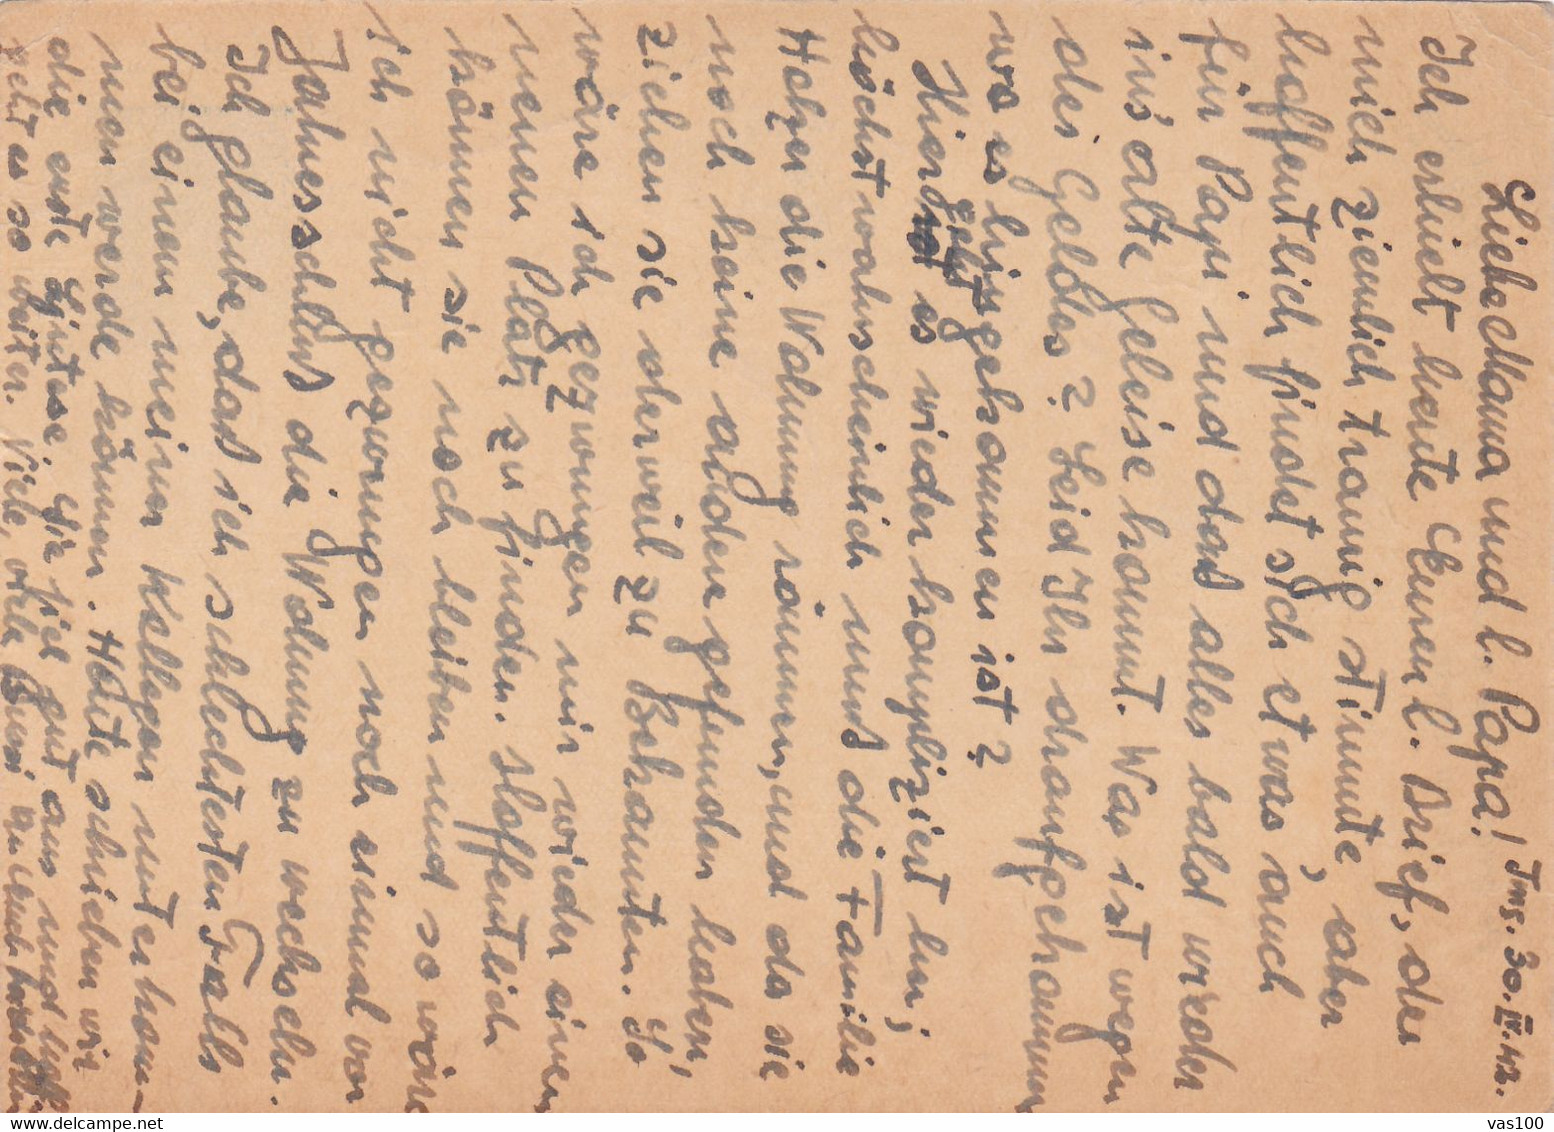 Ins. 30.IV.42.
Liebe Mama und l. Papa!
Ich erhielt heute Euren l. Brief, der
mich ziemlich traurig stimmte, aber
hoffentlich findet sich etwas, auch
für Papi und das alles bald wieder
ins alte Geleise kommt. Was ist wegen
des Geldes? Seid Ihr draufgekommen
wo es hingekommen ist?
Hier geht es wieder kompliziert her;
höchstwahrscheinlich muss die Familie
Holzer die Wohnung räumen, und da sie
noch keine andere gefunden haben,
ziehen sie derweil zu Bekannten. So
wäre ich gezwungen mir wieder einen
neuen Platz zu finden. Hoffentlich
können sie noch bleiben und so wäre
ich nicht gezwungen noch einmal vor
Jahresschluss die Wohnung zu wechseln.
Ich glaube, dass ich schlechtesten Falls
bei einem meiner Kollegen unterkom-
men werde können. Heute schrieben wir
die erste
geht es so weiter. Viele, viele Bussi an Euch
vas100